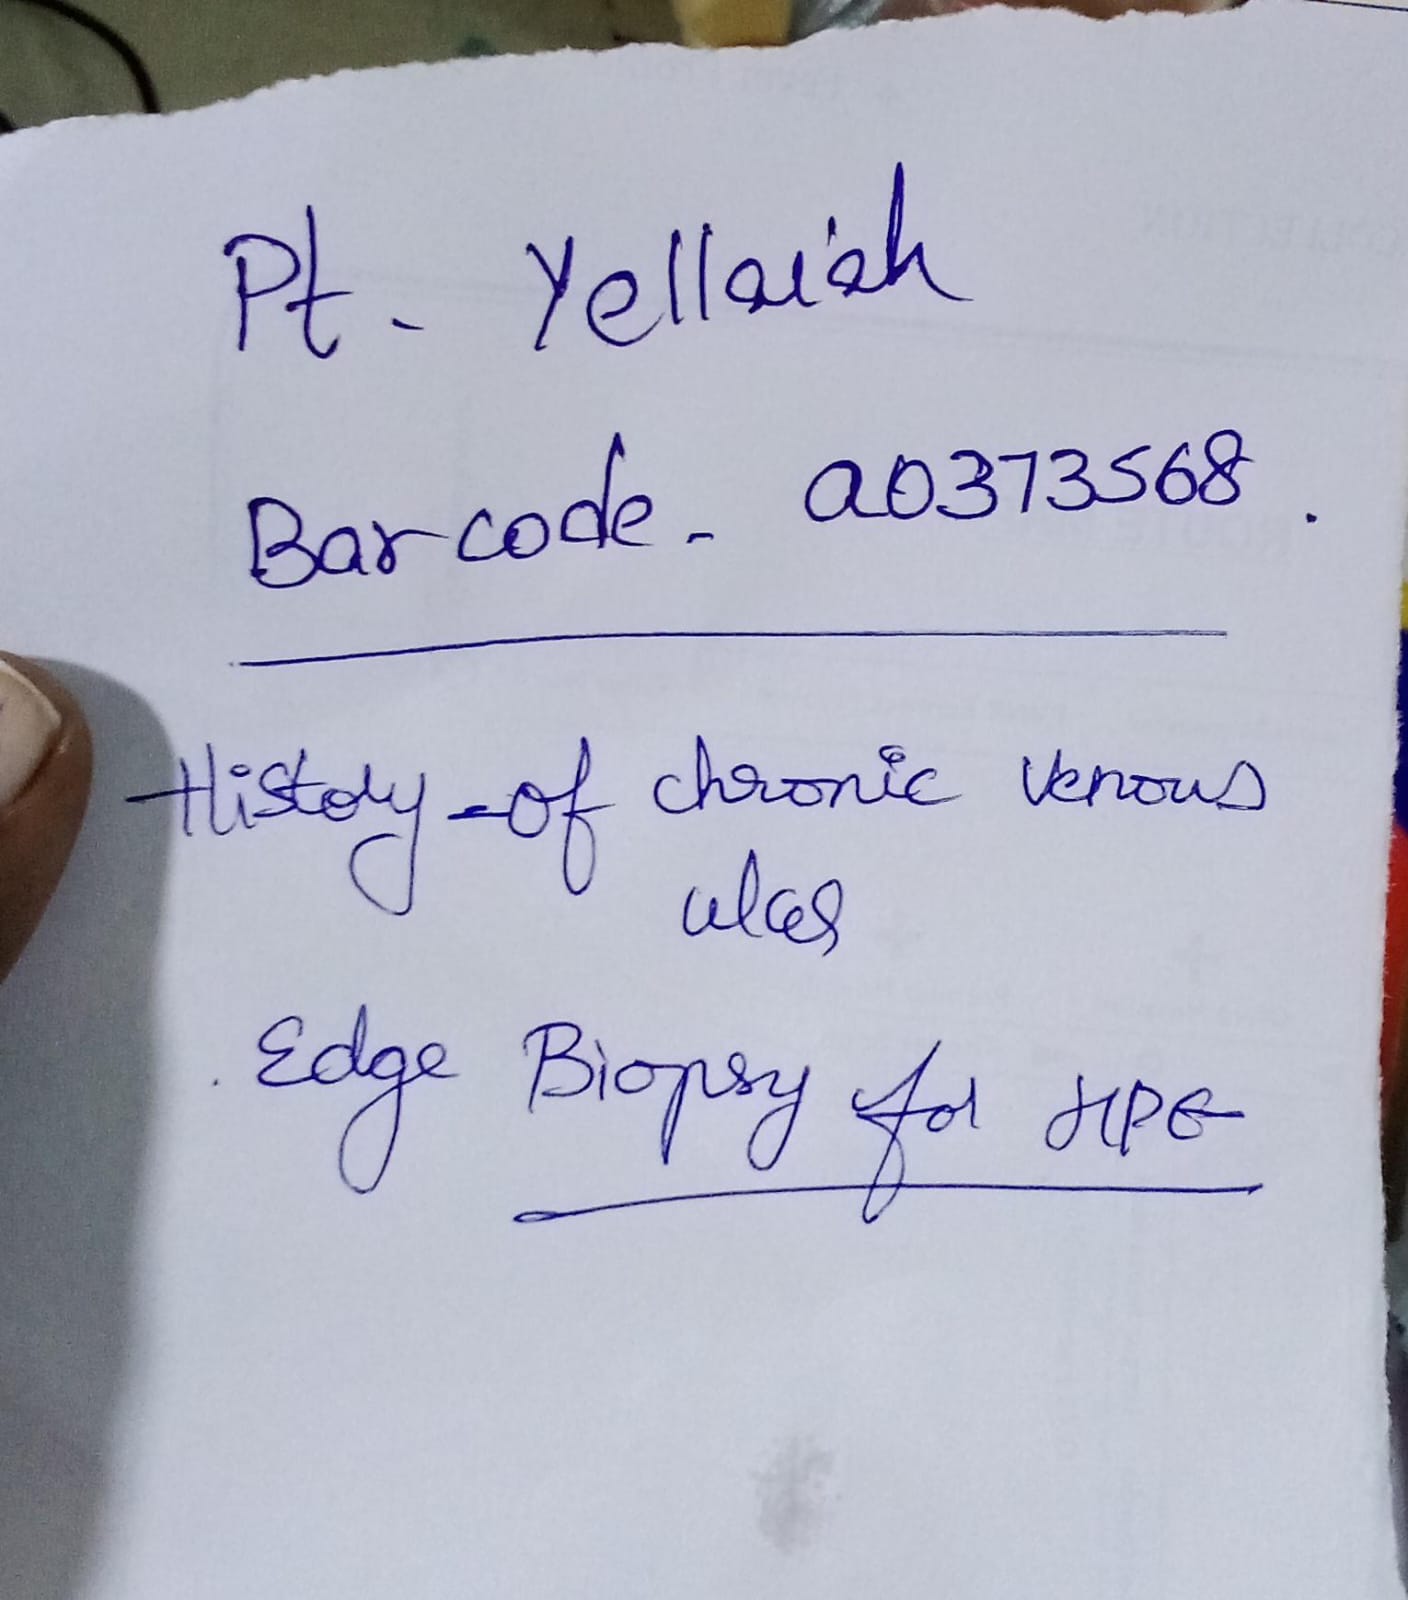 Pt. Yellaiah
Barcode. a0373568.
History of chronic venous
ulcer
. Edge Biopsy for HPE